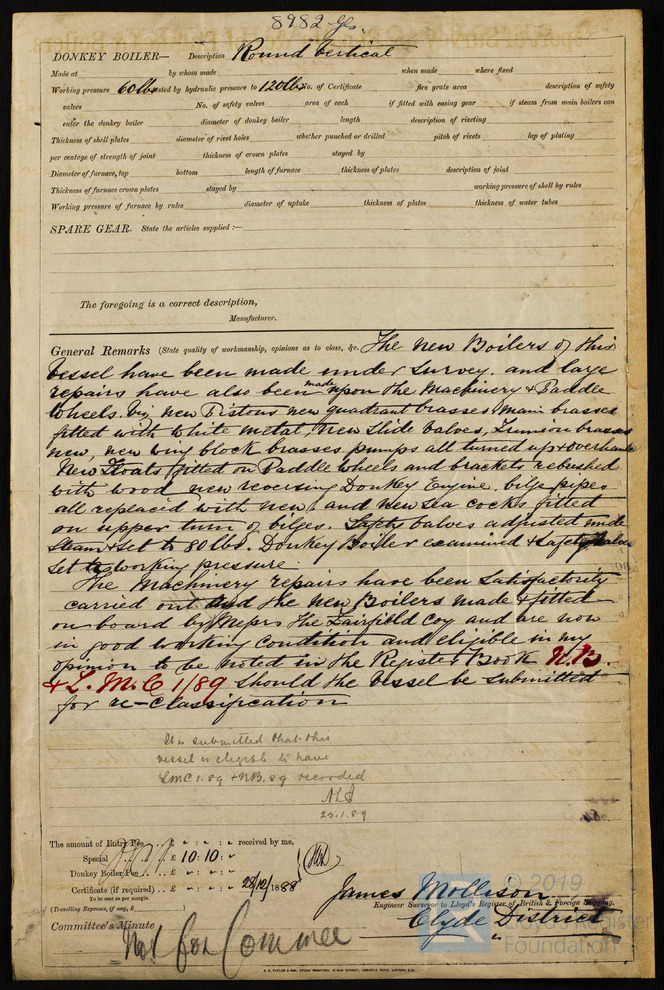 8982 Gls.
DONKEY BOILER— Description Round Vertical
Made at by whom made when made where fixed
Working pressure 60lbs tested by hydraulic pressure to 120lbs No. of Certificate fire grate area description of safety
valves No. of safety valves area of each if fitted with easing gear if steam from main boilers can
enter the donkey boiler diameter of donkey boiler length description of riveting
Thickness of shell plates diameter of rivet holes whether punched or drilled pitch of rivets lap of plating
per centage of strength of joint thickness of crown plates stayed by
Diameter of furnace, top bottom length of furnace thickness of plates description of joint
Thickness of furnace crown plates stayed by working pressure of shell by rules
Working pressure of furnace by rules diameter of uptake thickness of plates thickness of water tubes
SPARE GEAR. State the articles supplied :—
The foregoing is a correct description,
Manufacturer.
General Remarks (State quality of workmanship, opinions as to class, &c. The New Boilers of this
Vessel have been made under survey. and large
repairs have also been made upon the Machinery & Paddle
Wheels. Viz; new Pistons new quadrant brasses, main brasses
fitted with white metal, New Slide Valves, Trunion brasses
new, new wing block brasses pumps all turned up & overhauled
New Floats fitted on Paddle wheels and brackets rebushed
with wood new reversing Donkey Engine. bilge pipes
all replaced with new, and new sea cocks fitted
on upper turn of bilges. Safety Valves adjusted under
Steam & set to 80lbs. Donkey Boiler examined & Safety Valve
set to working pressure.
The Machinery repairs have been Satisfactorily
carried out and the new Boilers made & fitted
on board by Messrs The Fairfield Coy and are now
in good working condition and eligible in my
opinion to be noted in the Register Book N.B.
+ L.M.C 1/89 should the vessel be submitted
for re-classification
It is submitted that this
vessel is eligible to have
LMC 1.89 + NB.89 recorded
25.1.89
The amount of Entry Fee .. £ : : received by me,
Special .. £ 10:10:
Donkey Boiler Fee .. £ : :
Certificate (if required) .. £ : : 28/12/1888
To be sent as per margin.
(Travelling Expenses, if any, £ )
James Mollison
Engineer Surveyor to Lloyd's Register of British & Foreign Shipping.
Clyde District
Committee's Minute
Not for Commee
© 2019
Lloyd's Register
Foundation